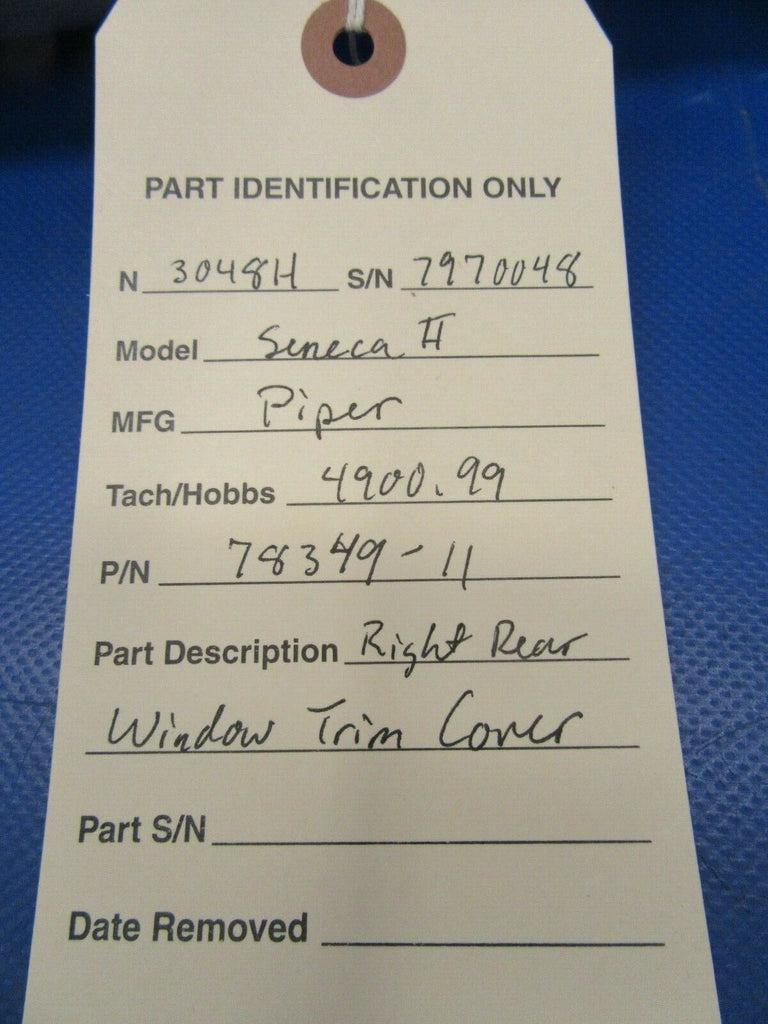 PART IDENTIFICATION ONLY
N 3048H S/N 7970048
Model Seneca II
MFG Piper
Tach/Hobbs 4900.99
P/N 78349-11
Part Description Right Rear
Window Trim Cover
Part S/N
Date Removed